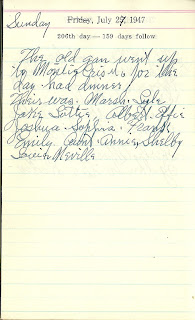 Sunday
Friday, July 27, 1947
206th day — 159 days follow
The old gan went up
to Monticristo for the
day. had dinner
Their was. Maron. Lyle
Jake Lottie, Albert. Effie
Joshua. Sophia. Frank
Emily. Aunt. Annie. Shelby
Neville